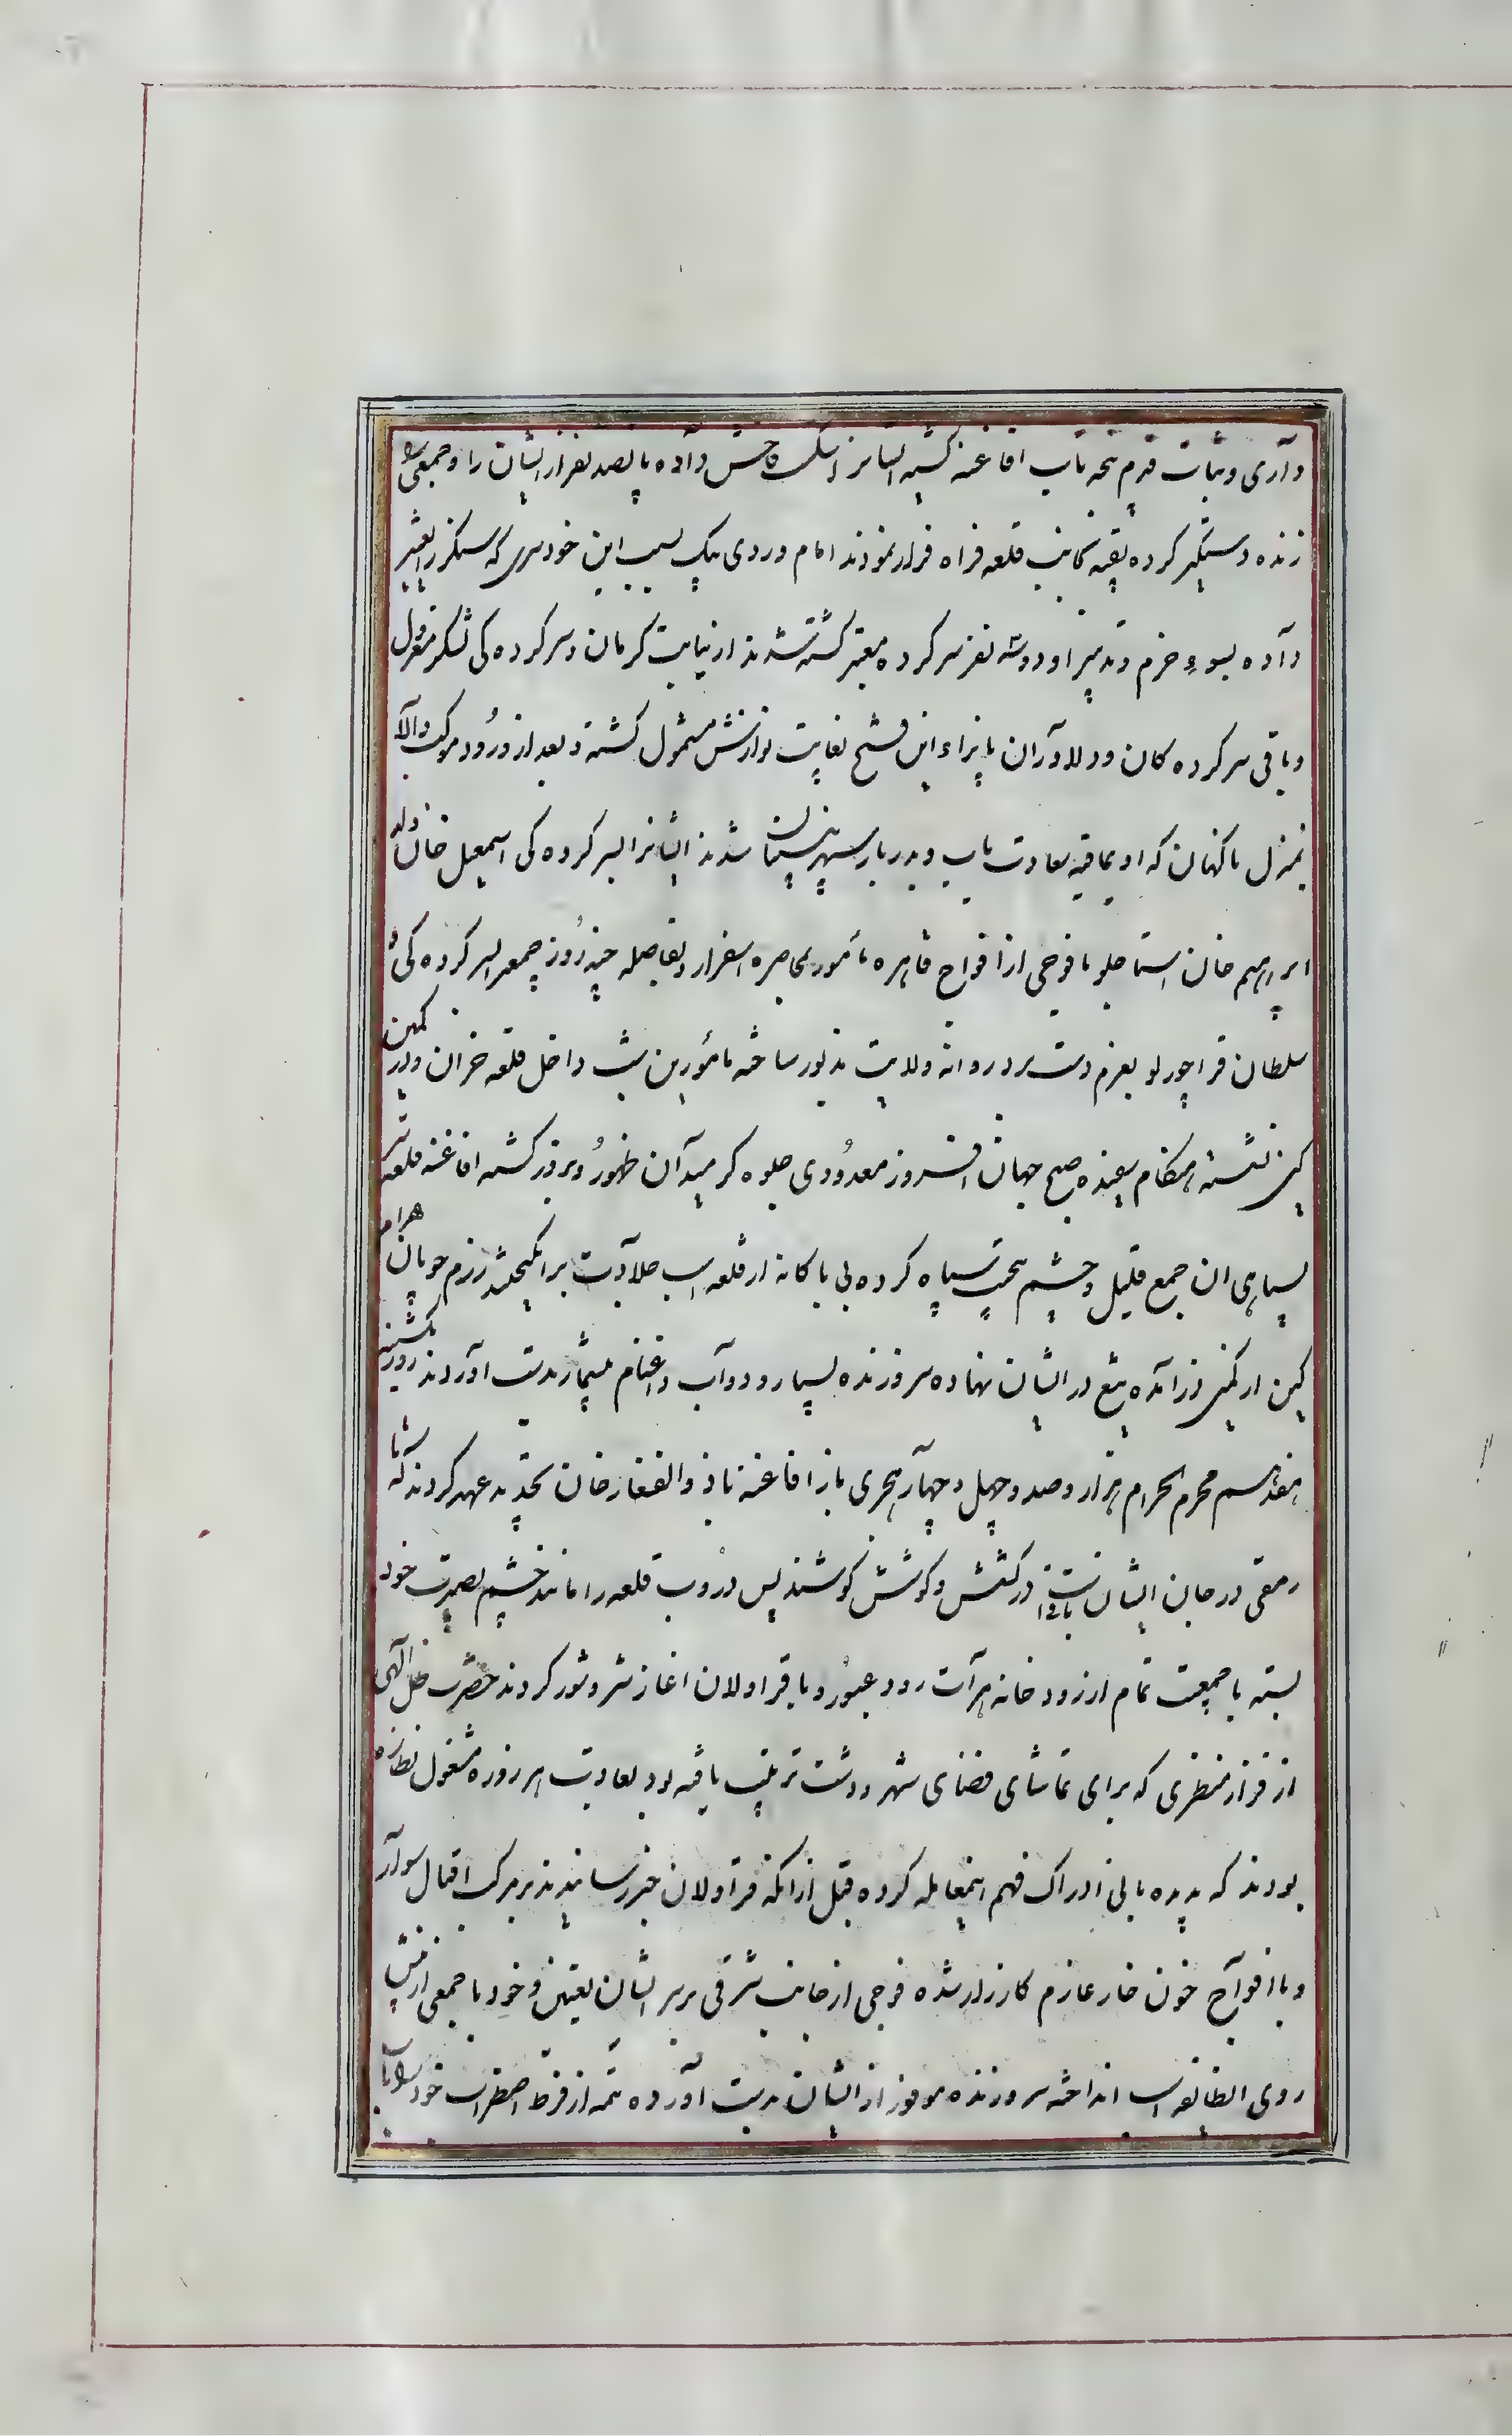 داری و ثبات قدم پنجه تاب افاغنه گشته ایشانرا شکست فاحش داده پانصد نفر از ایشان را و جمعی را
زنده دستگیر کرده بقیه بجانب قلعه فراه فرار نمودند امام وردی بیک بسبب این خودسری که سنگر را تغییر
داده بسوء حزم و تدبیر او دو سه نفر سرکرده معتبر کشته شدند از نیابت کرمان و سرکرده کی لشکر معزول
و باقی سرکرده کان و دلاوران بازاء این فتح بغایت نوازش مشمول گشته و بعد از ورود موکب والا
بمنزل ناکهان که اویماقیه سعادت یاب و بدربار سپهر بنیان شدند ایشانرا بسرکرده کی اسمعیل خان ولد
ابراهیم خان استاجلو با فوجی از افواج قاهره مأمور بمحاصره اسفزار و بفاصله چند روز جمعی بسرکرده کی
سلطان قراچورلو بعزم دست برد روانه ولایت مذبور ساخته مأمورین شب داخل قلعه خران و در کمین
کین نشسته هنکام سفیده صبح جهان افروز معدودی جلوه کر میدان ظهور و بروز گشته افاغنه قلعه
بسیاهی ان جمع قلیل چشم سخت سیاه کرده بی باکانه از قلعه اسب جلادت برانگیختند رزم جویان
کین از کمین درآمده تیغ در ایشان نهاده سر و زنده بسیار و دواب و اغنام بیشمار بدست اوردند روز یکشنبه
هفدهم محرم الحرام هزار و صد و چهل و چهار هجری باز افاغنه با ذوالفقار خان تجدید عهد کردند که تا
رمقی در جان ایشان باقیست در کشش و کوشش کوشند پس دروب قلعه را مانند چشم بصیرت خود
بسته با جمعیت تمام از رودخانه هرات رود عبور و با قراولان اغاز شر و شور کردند حضرت ظل الهی
از فراز منظری که برای تماشای فضای شهر و دشت ترتیب یافته بود بعادت هر روزه مشغول نظاره
بودند که بدیده بانی ادراک فهم اینمعامله کرده قبل از انکه قراولان خبر رسانیدند بر مرکب اقبال سوار
و با افواج خون خار عازم کارزار شده فوجی از جانب شرقی بر سر ایشان تعیین و خود با جمعی از پیش
روی انطایفه اسب انداخته سر و زنده موفور از ایشان بدست آورده تتمه از فرط اضطراب خود را بآب